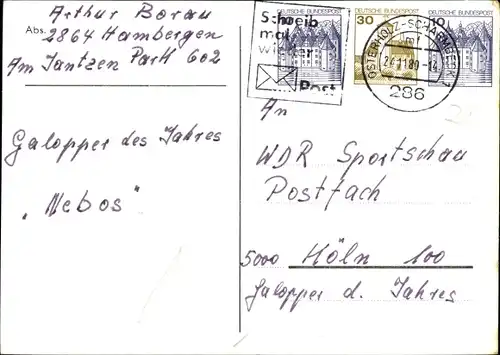 Abs.
Arthur Borau
2864 Hambergen
Am Jantzen Park 602
Galopper des Jahres
"Nebos"
Schreib
mal
wieder
Post
DEUTSCHE BUNDESPOST
30
DEUTSCHE BUNDESPOST
10
DEUTSCHE BUNDESPOST
OSTERHOLZ-SCHARMBECK 1
24.11.80-14
286
An
WDR Sportschau
Postfach
5000 Köln 100
Galopper d. Jahres